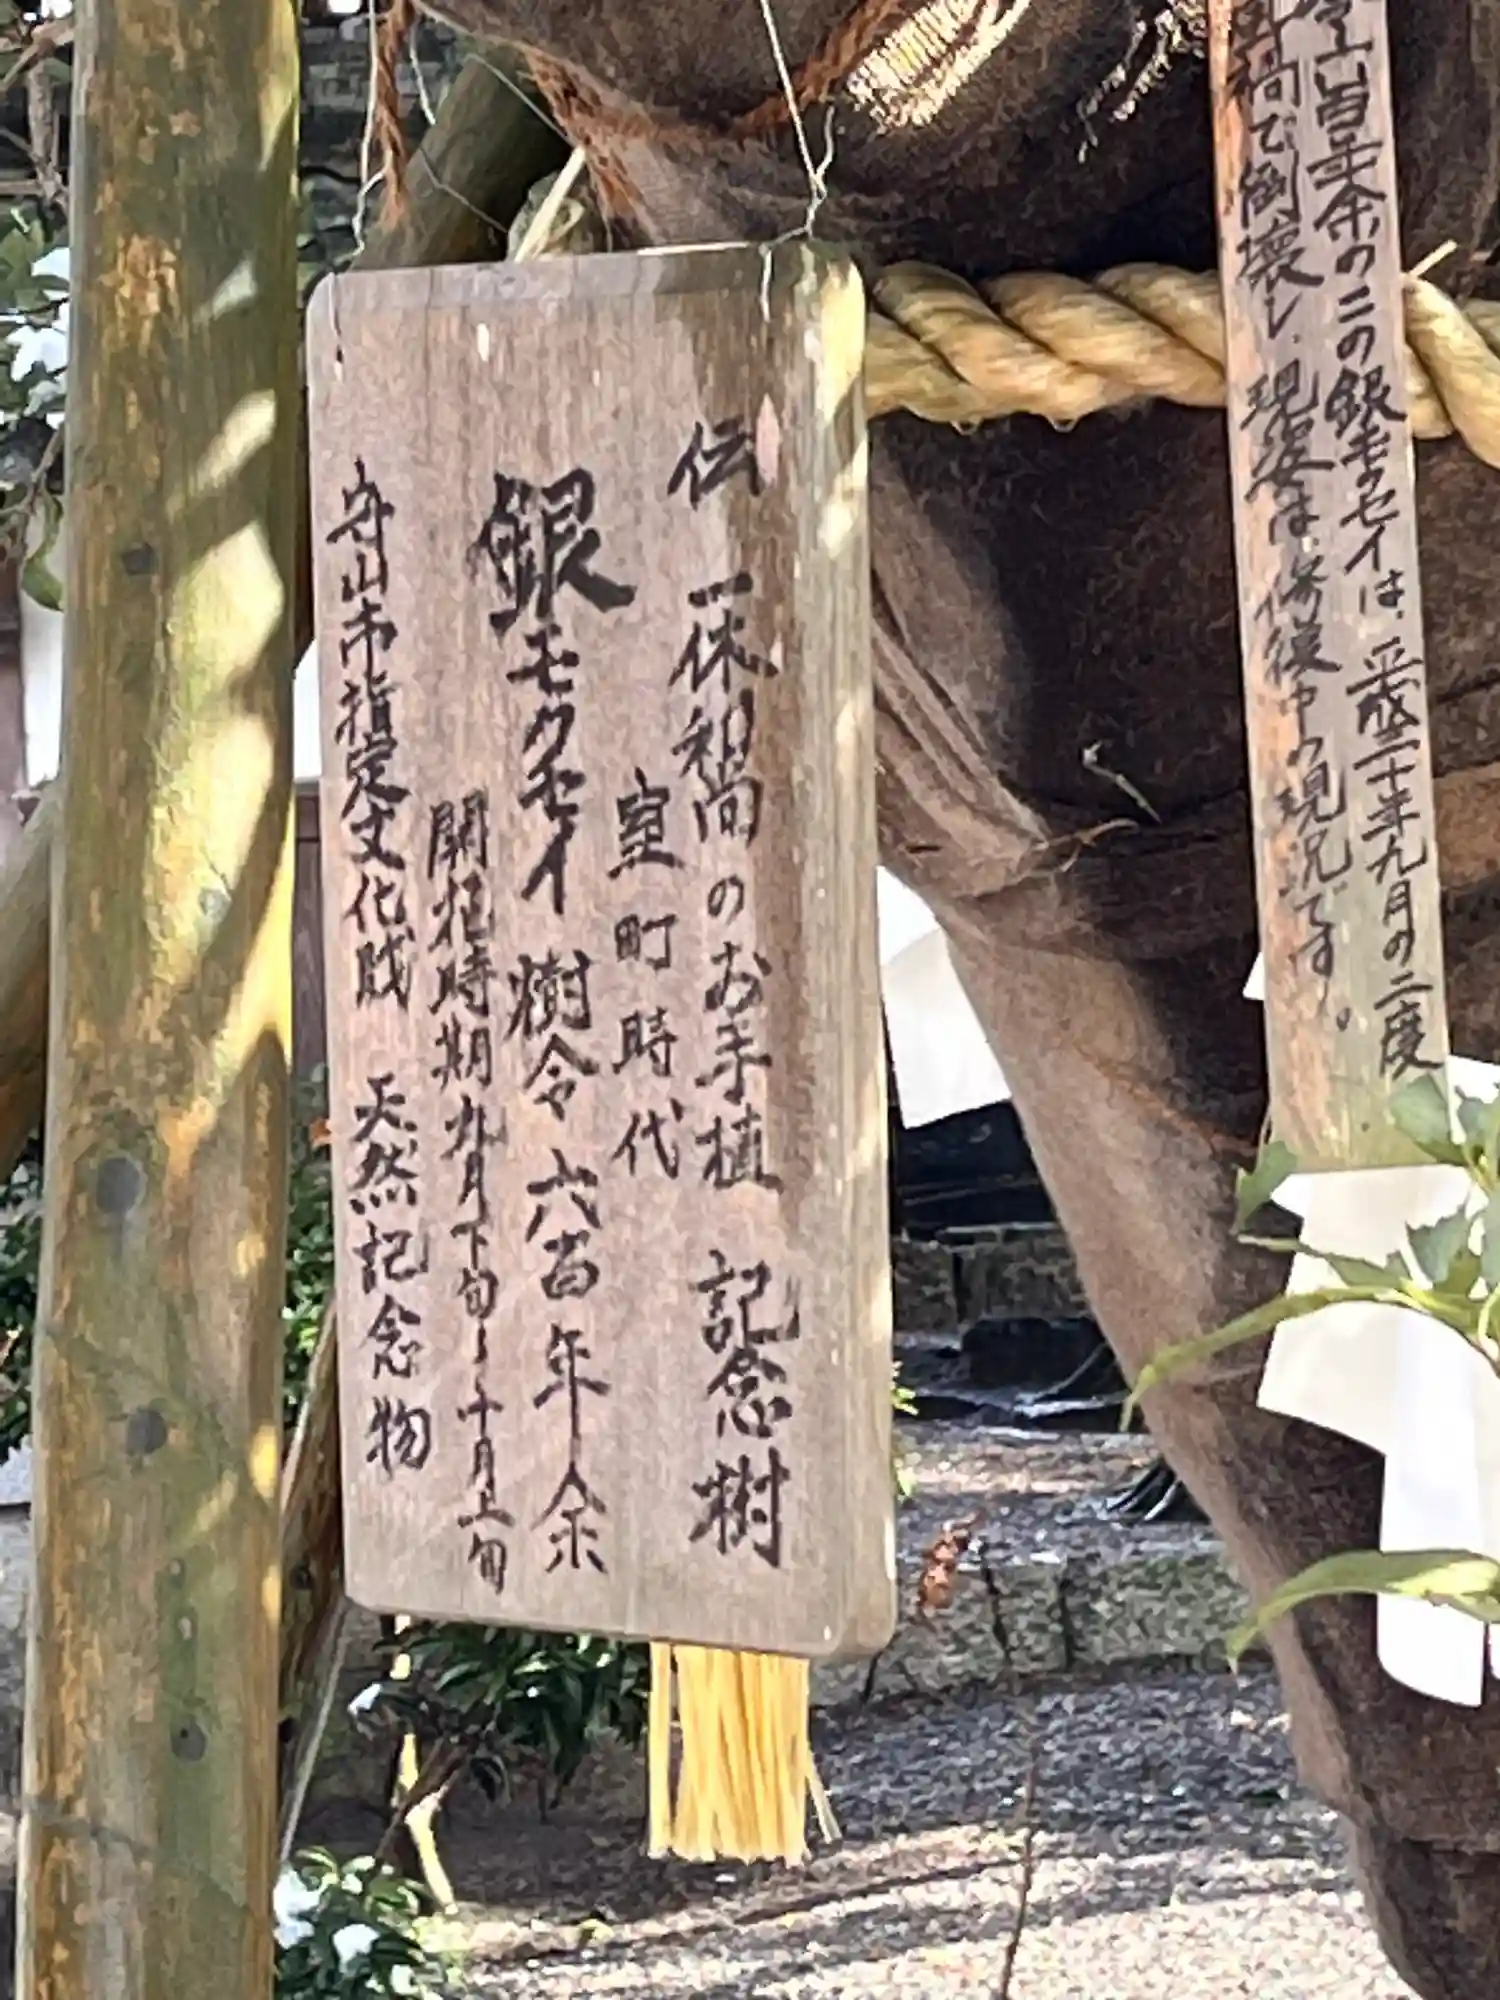 六百年余の二の銀モクセイは、平成二十年九月の二度
で倒壊し、現姿は、修復中の現況です。
伝 一休和尚のお手植 記念樹
室町時代
銀モクセイ 樹令六百年余
開花時期 九月下旬〜十月上旬
守山市指定文化財 天然記念物